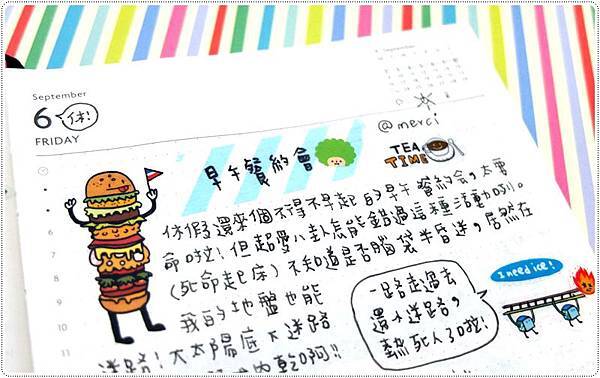 September
6
休!
FRIDAY
September
@merci
早午餐約會
TEA
TIME
休假還來個不得不早起的早午餐約會,太要
命啦!但超愛八卦怎能錯過這種活動咧。
(死命起床)不知道是否腦袋半昏迷,居然在
我的地盤也能
迷路!大太陽底下迷路
乾啊!!
一路走過去
還小迷路,
熱死人了啦!
I need ice!
6
7
8
9
10
11